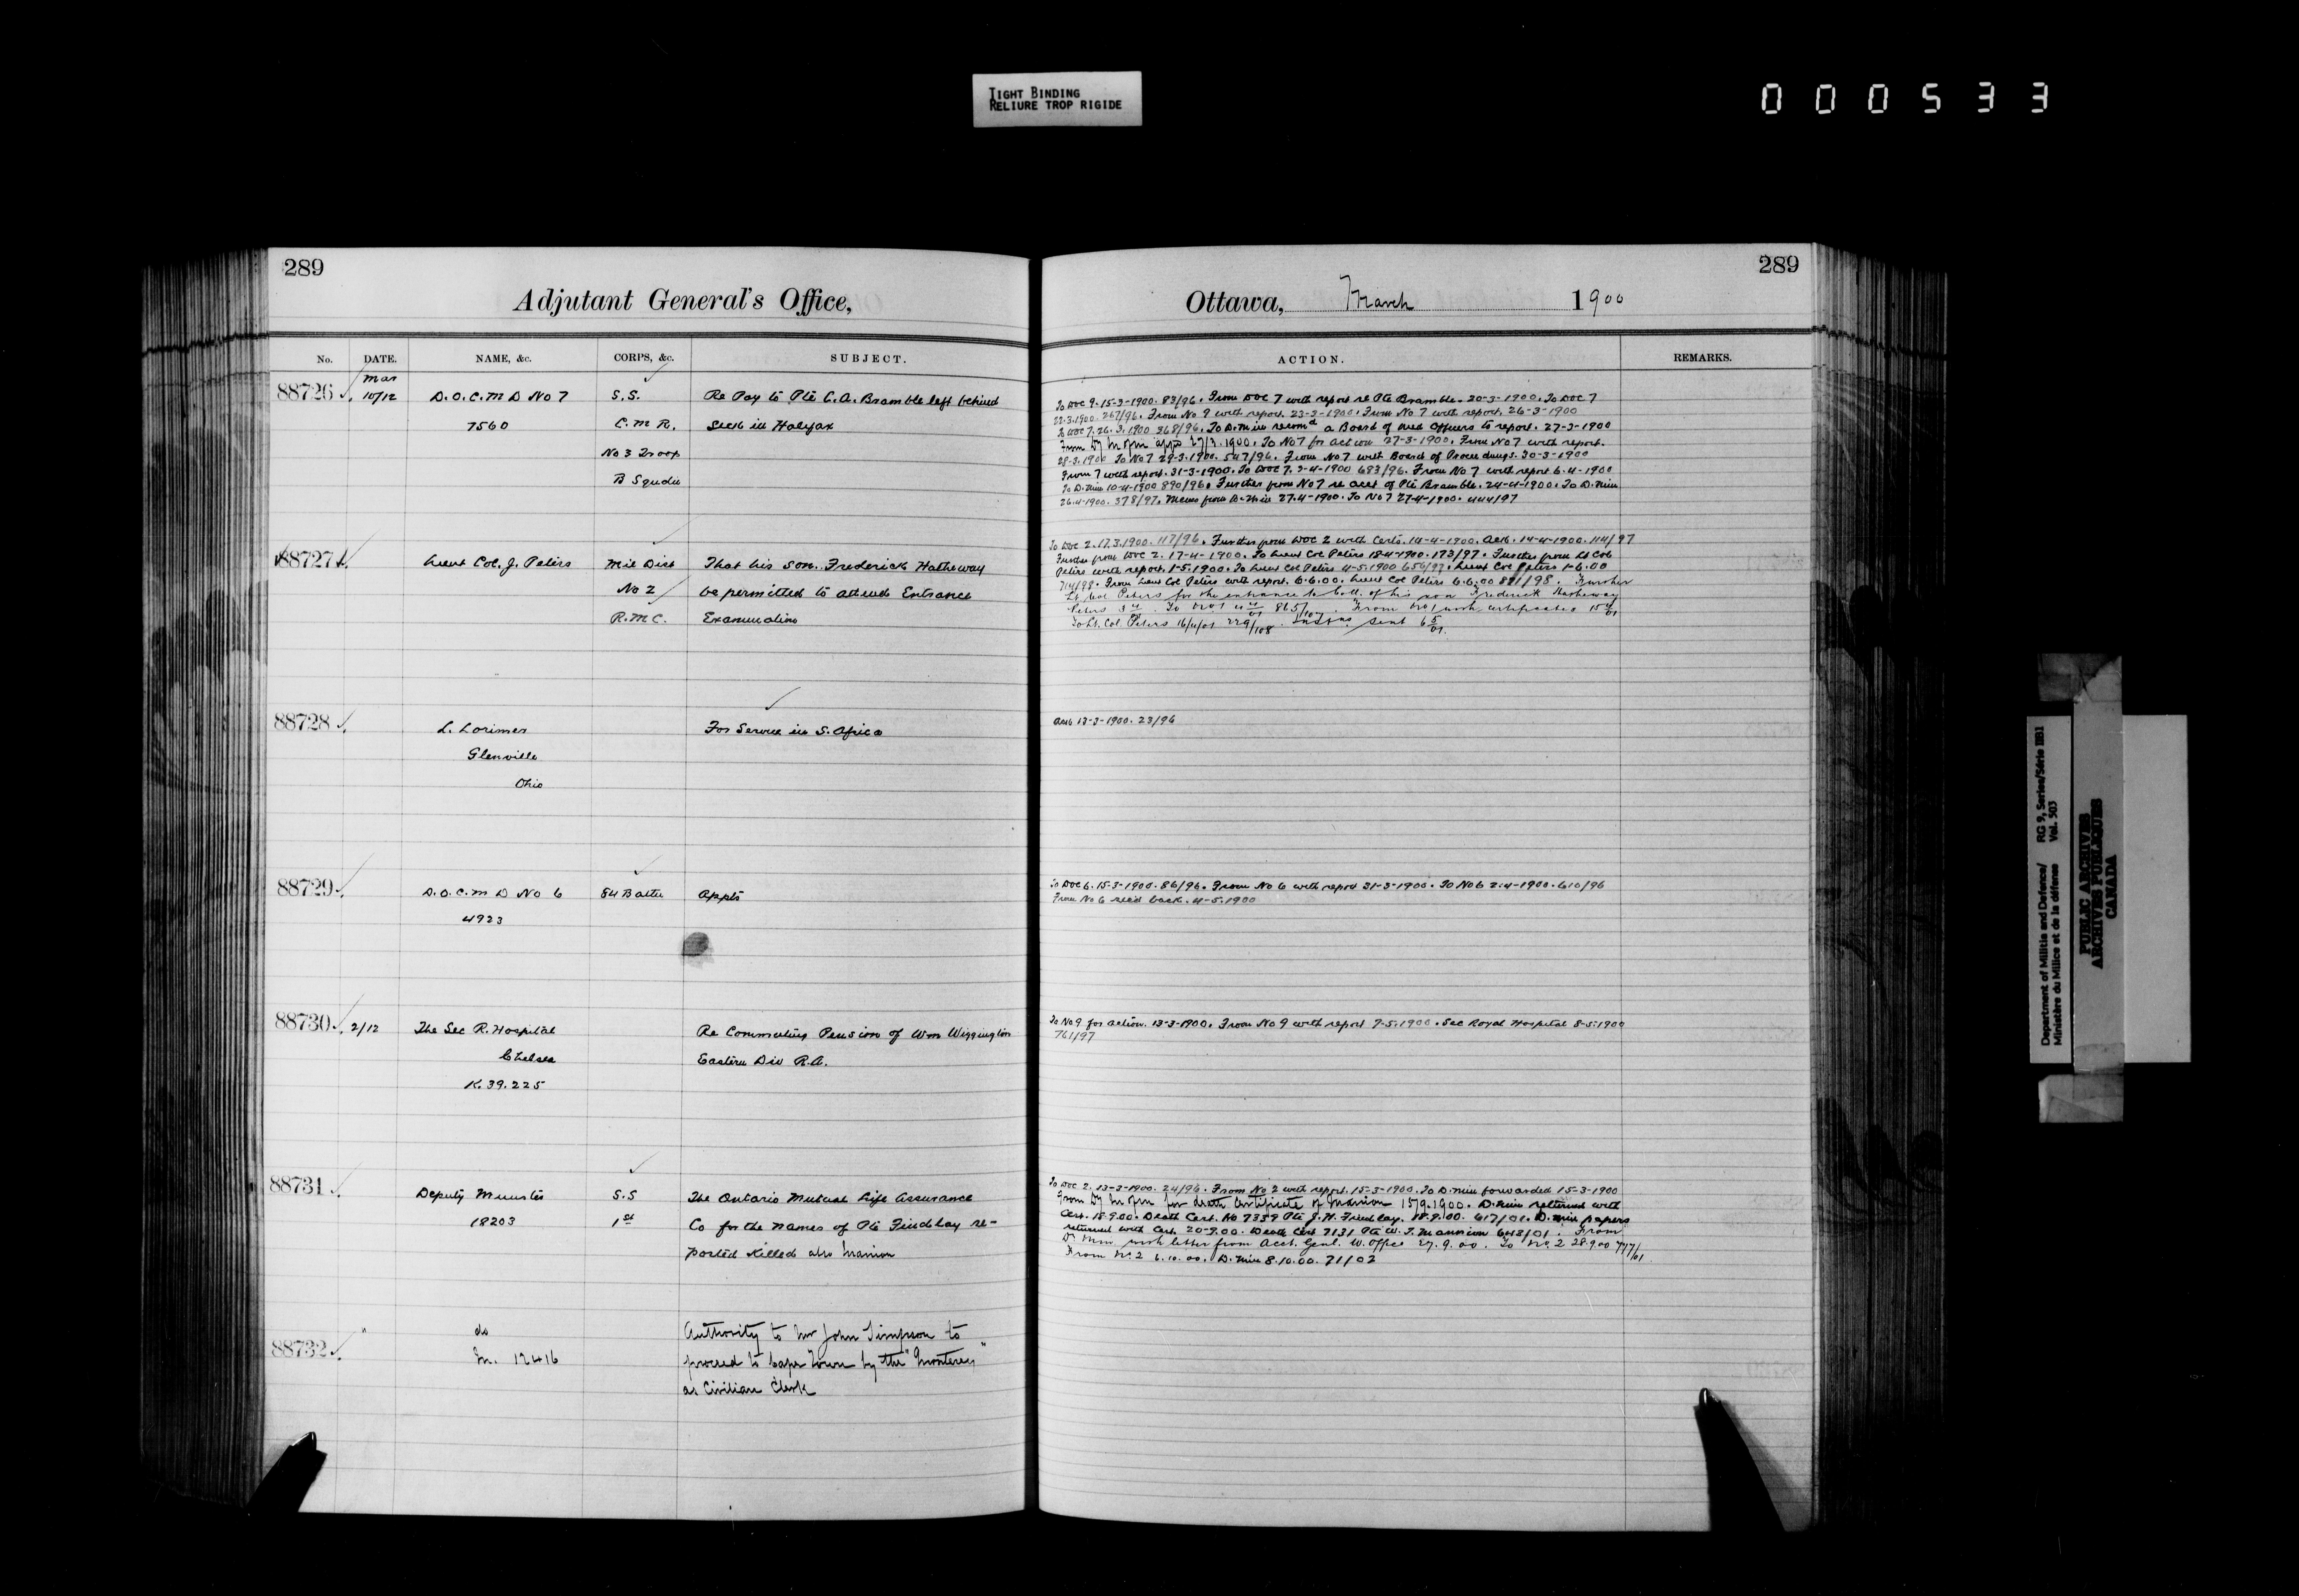 TIGHT BINDING
RELIURE TROP RIGIDE
000533
289
Adjutant General's Office,
289
Ottawa, March 1900
No. DATE. NAME, &c. CORPS, &c. SUBJECT.
ACTION. REMARKS.
Mar
88726 10/12 D.O.C. M D No 7 S.S. Re Pay to Pte C.A. Bramble left behind
7560 C.M.R. Sick in Halifax
No 3 Troop
B Squdn
To DOC 9. 15-3-1900. 83/96. From DOC 7 with report re Pte Bramble. 20-3-1900. To DOC 7
22.3.1900. 267/96. From No 9 with report. 23-3-1900. From No 7 with report. 26-3-1900
To DOC 7. 26.3.1900 368/96. To D.Min recomd a Board of Med Officers to report. 27-3-1900
From Dy Mn appd 27/3.1900. To No 7 for action 27-3-1900. From No 7 with report.
28-3.1900 To No 7 29-3.1900. 547/96. From No 7 with Board of Proceedings. 30-3-1900
From 7 with report. 31-3-1900. To DOC 7. 3-4-1900 683/96. From No 7 with report 6.4-1900
To D.Min 10-4-1900 890/96. Further from No 7 re acct of Pte Bramble. 24-4-1900. To D.Min
26.4-1900. 378/97. Memo from D.Min 27.4-1900. To No 7 27-4-1900. 444/97
88727 Lieut Col. J. Peters Mil Dist That his son, Frederick Hatheway
No 2 be permitted to attend Entrance
R.M.C. Examination
To DOC 2. 17.3.1900. 117/96. Further from DOC 2 with Certs. 14-4-1900. Ack. 14-4-1900. 114/97
Further from DOC 2. 17-4-1900. To Lieut Col Peters 18-4-1900. 173/97. Further from Lt Col
Peters with report. 1-5.1900. To Lieut Col Peters 4-5.1900 656/97. Lieut Col Peters 1-6.00
714/98. From Lieut Col Peters with report. 6.6.00. Lieut Col Peters 6.6.00 881/98. Further
Lt. Col. Peters for the entrance to Coll. of his son Frederick Hatheway
Peters To No 1 865/107. From No 1 with certificates
To Lt. Col. Peters 16/4/01 229/108. sent 6 5/01.
88728 L. Lorimer For Service in S. Africa
Glenville
Ohio
Ack 13-3-1900. 23/96
88729 D.O.C. M D No 6 84 Battn Appts
4923
To DOC 6. 15-3-1900. 86/96. From No 6 with report 31-3-1900. To No 6 2.4-1900. 610/96
From No 6 recd back. 4-5.1900
88730 2/12 The Sec R. Hospital Re Commuting Pension of Wm Wiggington
Chelsea Eastern Div R.A.
K.39.225
To No 9 for action. 13-3-1900. From No 9 with report 7-5.1900. Sec Royal Hospital 8-5.1900
761/97
88731 Deputy Minister S.S The Ontario Mutual Life Assurance
18203 1st Co for the names of Pte Findlay re-
ported killed also Manion
To DOC 2. 13-3-1900. 24/96. From No 2 with report. 15-3-1900. To D.Min forwarded 15-3-1900
From Dy Mn for death certificate of Manion 15/9.1900. D.Min returned with
Cert. 18.9.00. Death Cert. No 7359 Pte J.H. Findlay. 18.9.00. 617/01. D.Min papers
returned with Cert. 20-9.00. Death Cert 7131 Pte W.T. Mannion 648/01. From
Dy Min with letter from Acct. Genl. W. Office 27.9.00. To No. 2 28.9.00 777/01
From No. 2 6.10.00. D.Min 8.10.00. 71/02
88732 " do Authority to Mr John Simpson to
M. 12416 proceed to Cape Town by the "Monterey"
as Civilian Clerk
Department of Militia and Defence/ RG 9, Series/Série IIB1
Ministère du Milice et de la défense Vol. 503
PUBLIC ARCHIVES
ARCHIVES PUBLIQUES
CANADA